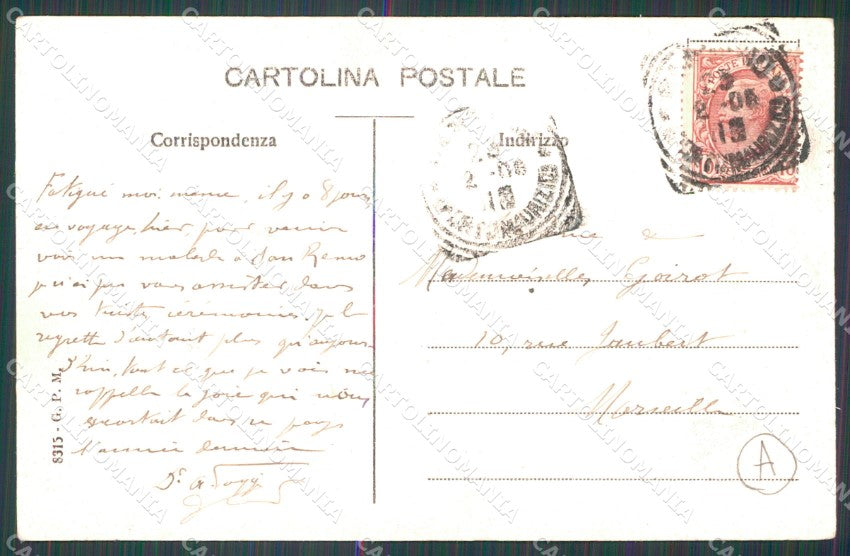 CARTOLINA POSTALE
Corrispondenza
Indirizzo
Fatigué moi même, il y a 8 jours
en voyage, hier, pour venir
voir un malade à San Remo
je n'ai pu vous assister dans
vos tristes cérémonies. Je le
regrette d'autant plus qu'aujour
d'hui, tout ce que je vois me
rappelle la joie qui nous
escortait dans ce pays
l'année dernière
Dr A.
de
Mesdemoiselles Goirot
10, rue Jaubert
Marseille
8315 - G. P. M.
A
PORTO MAURIZIO
2 08
PORTO MAURIZIO
08
CARTOLINOMANIA